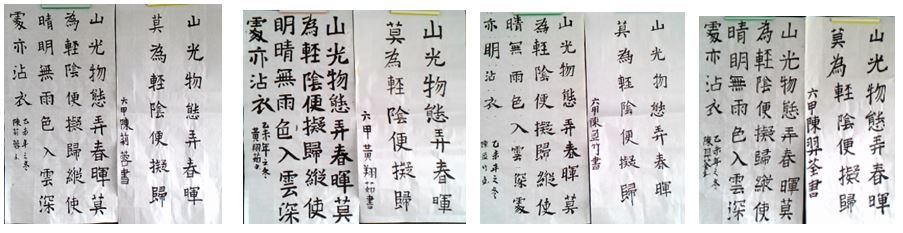 山光物態弄春暉
莫為輕陰便擬歸
六甲陳莉蓉書
山光物態弄春暉莫
為輕陰便擬歸縱使
晴明無雨色入雲深
處亦沾衣
乙未年之冬
山光物態弄春暉
莫為輕陰便擬歸
六甲黃翔茹書
山光物態弄春暉莫
為輕陰便擬歸縱使
明晴無雨色入雲深
處亦沾衣
乙未年之冬
黃翔茹
山光物態弄春暉
莫為輕陰便擬歸
六甲陳竹書
山光物態弄春暉莫
為輕陰便擬歸縱使
晴無雨色入雲深處
亦明沾衣
乙未年之冬
山光物態弄春暉
莫為輕陰便擬歸
六甲陳羿荃書
山光物態弄春暉莫
為輕陰便擬歸縱使
晴明無雨色入雲深
處亦沾衣
乙未年之冬